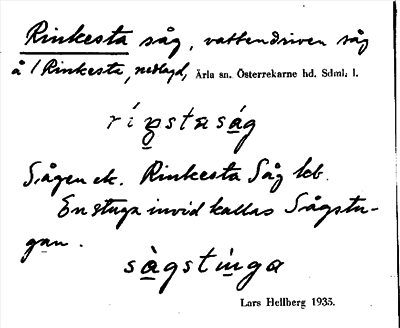 Rinkesta såg, vattendriven såg
å / Rinkesta, nedlagd, Ärla sn. Österrekarne hd. Sdml. l.
ríŋstasåg
Sågen ek. Rinkesta Såg kb.
En stuga invid kallas Sågstu-
gan.
sàgstínga
Lars Hellberg 1935.